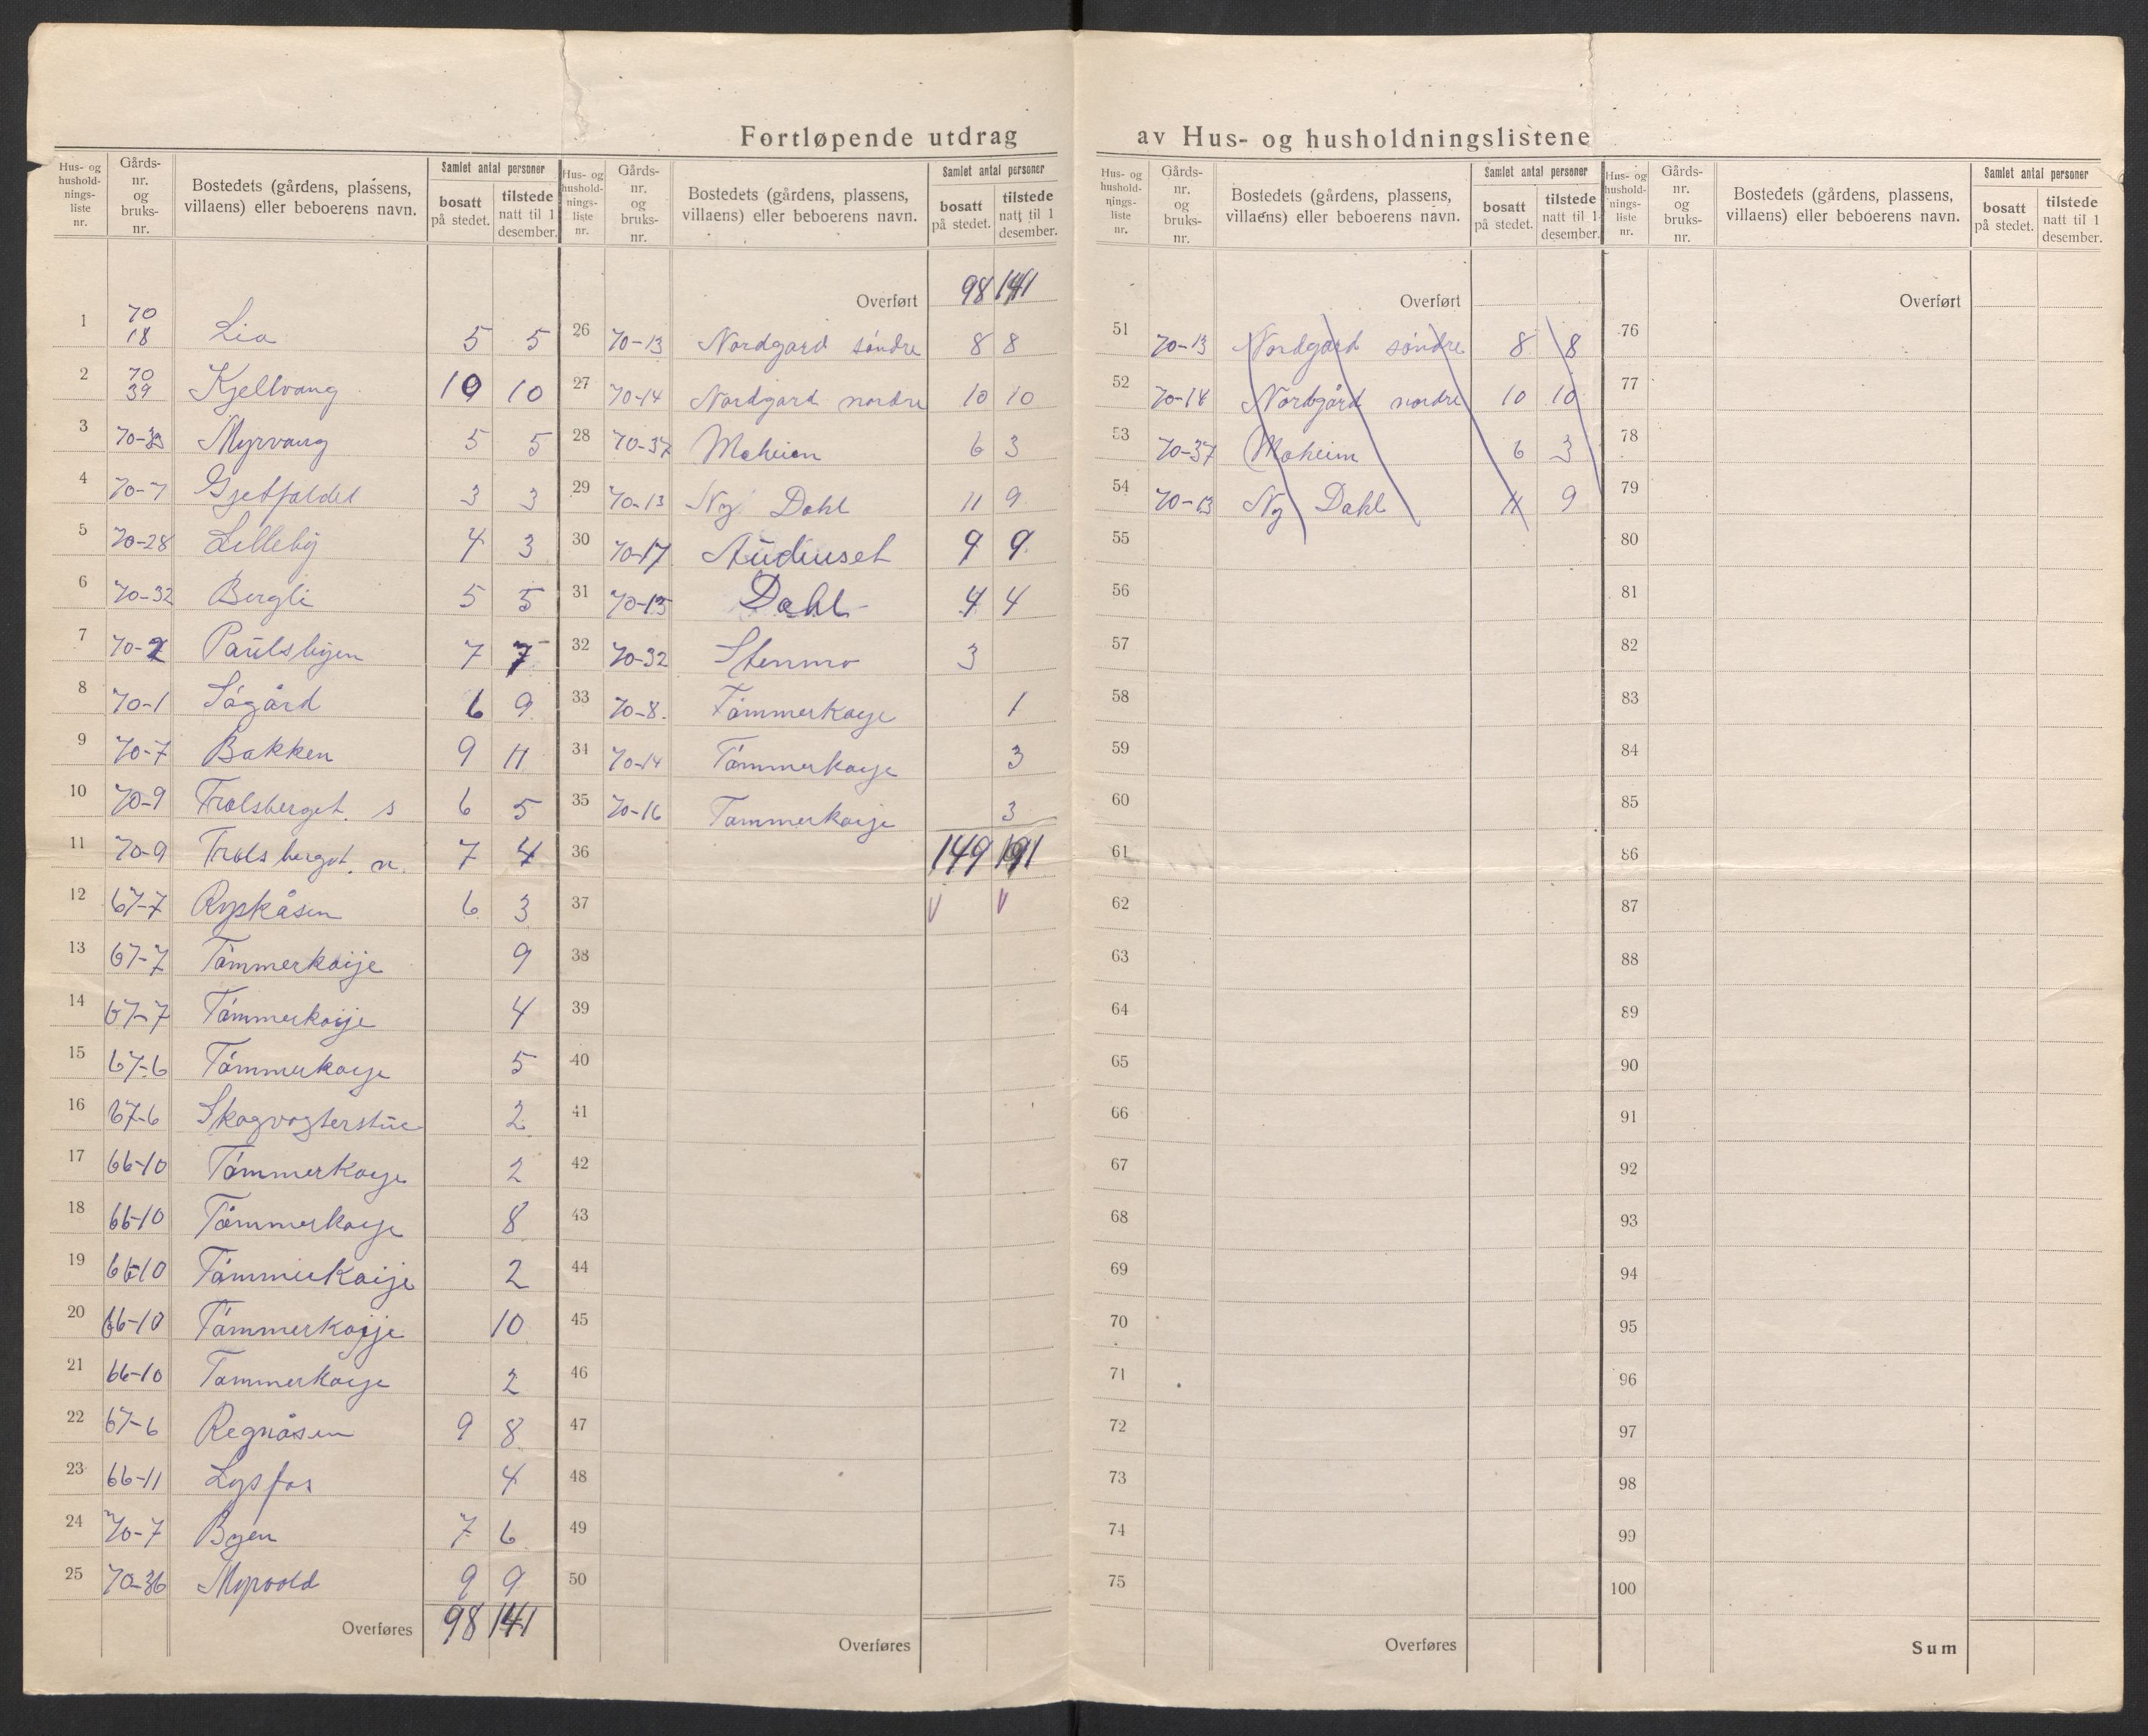 Fortløpende utdrag av Hus- og husholdningslistene
Hus- og hushold-nings-liste nr. Gårds-nr. og bruks-nr. Bostedets (gårdens, plassens, villaens) eller beboerens navn. Samlet antal personer bosatt på stedet. tilstede natt til 1 desember.
1 70 18 Lia 5 5
2 70 39 Kjellvang 10 10
3 70-33 Myrvang 5 5
4 70-7 Gjetfaldet 3 3
5 70-28 Lilleby 4 3
6 70-32 Bergli 5 5
7 70-2 Paulsbyen 7 7
8 70-1 Sógård 6 9
9 70-7 Bakken 9 11
10 70-9 Trolsberget. s 6 5
11 70-9 Trolsberget. n. 7 4
12 67-7 Rypkåsen 6 3
13 67-7 Tómmerkoije 9
14 67-7 Tómmerkoije 4
15 67-6 Tómmerkoije 5
16 67-6 Skogvogterstue 2
17 66-10 Tómmerkoije 2
18 66-10 Tómmerkoije 8
19 66-10 Tómmerkoije 2
20 66-10 Tómmerkoije 10
21 66-10 Tommerkoije 2
22 67-6 Regnåsen 9 8
23 66-11 Lysfos 4
24 70-7 Byen 7 6
25 70-36 Myrvold 9 9
Overføres 98 141
Hus- og hushold-nings-liste nr. Gårds-nr. og bruks-nr. Bostedets (gårdens, plassens, villaens) eller beboerens navn. Samlet antal personer bosatt på stedet. tilstede natt til 1 desember.
Overført 98 141
26 70-13 Nordgard søndre 8 8
27 70-14 Nordgard nordre 10 10
28 70-37 Moheim 6 3
29 70-13 Ny Dahl 11 9
30 70-17 9 9
31 70-15 Dahl 4 4
32 70-32 Stenmo 3
33 70-8. Tómmerkoije 1
34 70-14 Tómmerkoije 3
35 70-16 Tommerkoije 3
36 149 191
37 V V
38
39
40
41
42
43
44
45
46
47
48
49
50
Overføres
Hus- og hushold-nings-liste nr. Gårds-nr. og bruks-nr. Bostedets (gårdens, plassens, villaens) eller beboerens navn. Samlet antal personer bosatt på stedet. tilstede natt til 1 desember.
Overført
51 70-13 Nordgård søndre 8 8
52 70-14 Nordgård nordre 10 10
53 70-37 Moheim 6 3
54 70-13 Ny Dahl 11 9
55
56
57
58
59
60
61
62
63
64
65
66
67
68
69
70
71
72
73
74
75
Overføres
Hus- og hushold-nings-liste nr. Gårds-nr. og bruks-nr. Bostedets (gårdens, plassens, villaens) eller beboerens navn. Samlet antal personer bosatt på stedet. tilstede natt til 1 desember.
Overført
76
77
78
79
80
81
82
83
84
85
86
87
88
89
90
91
92
93
94
95
96
97
98
99
100
Sum